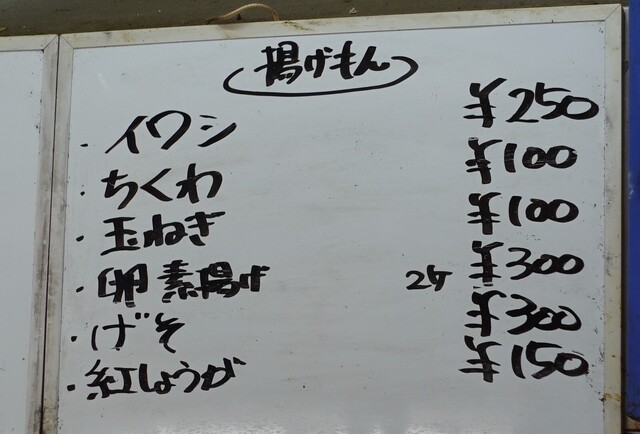 揚げもん
・イワシ ¥250
・ちくわ ¥100
・玉ねぎ ¥100
・卵素揚げ 2ケ ¥300
・げそ ¥300
・紅しょうが ¥150